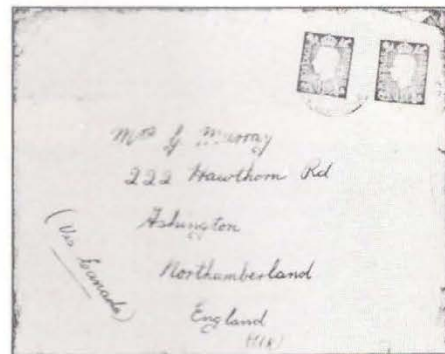 Mrs G Murray
222 Hawthorn Rd
Ashington
Northumberland
England
(Via Canada)